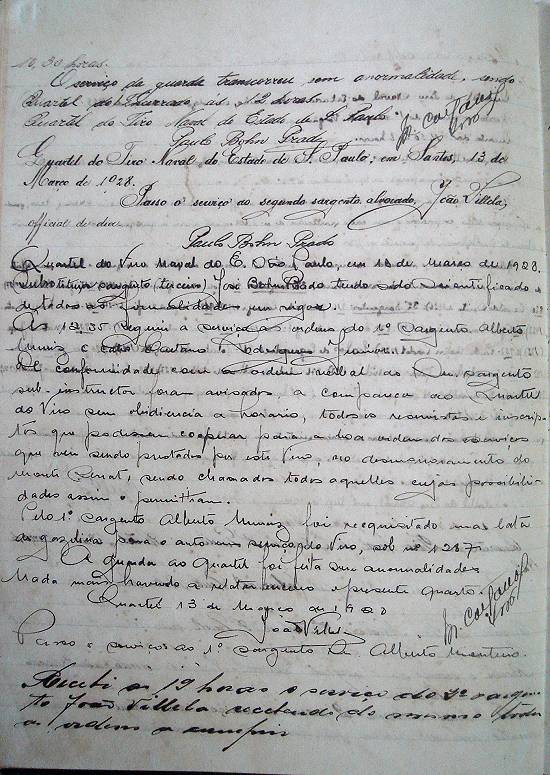 10,30 horas.
O serviço da guarda transcorreu sem anormalidade, sendo
Quartel do as 12 horas.
Quartel do Tiro Naval do Estado de S. Paulo
Paulo Bohn Prado
Quartel do Tiro Naval do Estado de S. Paulo, em Santos, 13 de
Março de 1928.
Passo o serviço ao segundo sargento João Villela,
official de dia.
Paulo Bohn Prado
Quartel do Tiro Naval do E. São Paulo, em 13 de Março de 1928.
sargento (terceiro) Bohn tendo sido scientificado
de todas as em vigor.
As 12,35 seguiu à serviço as ordens do 1º Sargento Alberto
Muniz Caetano Rodrigues Junior.
De conformidade com a ordem verbal do Snr. sargento
sub-instructor foram avisados a comparecer ao Quartel
do Tiro sem obidiencia a horario, todos os reservistas e inscrip-
tos que podessem cooperar para a boa ordem dos serviços
que vem sendo prestados por este Tiro, no desmoronamento do
Monte Serrat, sendo chamados todos aquelles cujas possibili-
dades assim o permittam.
Pelo 1º sargento Alberto Muniz foi requisitado uma lata
de gazolina para o auto em serviço do Tiro, sob nº 1287.
A guarda ao Quartel foi feita sem anormalidades
Nada mais havendo a relatar encerro o presente quarto.
Quartel 13 de Março de 1928
João Villela
Passo o serviço ao 1º sargento Alberto Monteiro.
Recebi as 19 horas o serviço do 2º sargen-
to João Villela recebendo do mesmo todas
as ordens a cumprir